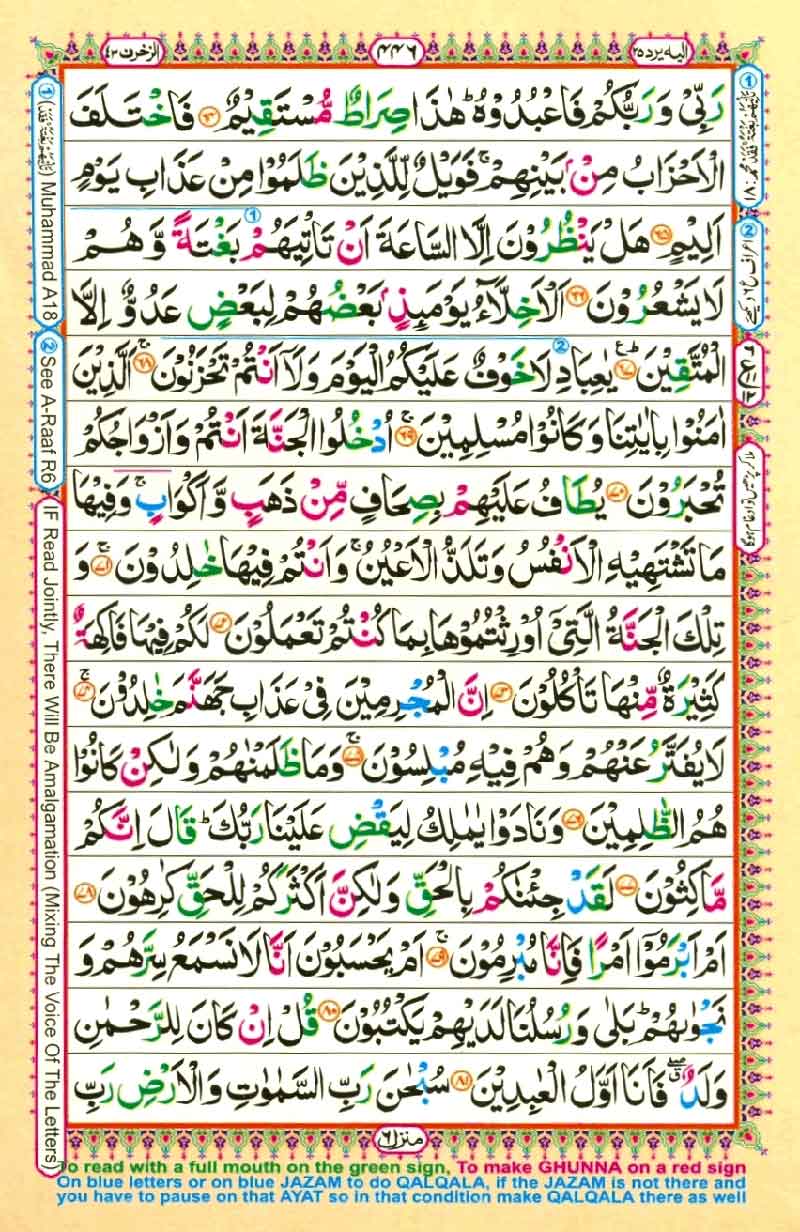 الیه یرد ۲۵
۴۴۶
الزخرف ۴۳
رَبِّیْ وَرَبُّكُمْ فَاعْبُدُوْهُ ؕ هٰذَا صِرَاطٌ مُّسْتَقِیْمٌ ۝۶۴ فَاخْتَلَفَ
الْاَحْزَابُ مِنْۢ بَیْنِهِمْ ۚ فَوَیْلٌ لِّلَّذِیْنَ ظَلَمُوْا مِنْ عَذَابِ یَوْمٍ
اَلِیْمٍ ۝۶۵ هَلْ یَنْظُرُوْنَ اِلَّا السَّاعَةَ اَنْ تَاْتِیَهُمْ بَغْتَةً وَّهُمْ
لَا یَشْعُرُوْنَ ۝۶۶ اَلْاَخِلَّآءُ یَوْمَىِٕذٍۭ بَعْضُهُمْ لِبَعْضٍ عَدُوٌّ اِلَّا
الْمُتَّقِیْنَ ۝۶۷ یٰعِبَادِ لَا خَوْفٌ عَلَیْكُمُ الْیَوْمَ وَلَاۤ اَنْتُمْ تَحْزَنُوْنَ ۝۶۸ اَلَّذِیْنَ
اٰمَنُوْا بِاٰیٰتِنَا وَكَانُوْا مُسْلِمِیْنَ ۝۶۹ اُدْخُلُوا الْجَنَّةَ اَنْتُمْ وَاَزْوَاجُكُمْ
تُحْبَرُوْنَ ۝۷۰ یُطَافُ عَلَیْهِمْ بِصِحَافٍ مِّنْ ذَهَبٍ وَّاَكْوَابٍ ۚ وَفِیْهَا
مَا تَشْتَهِیْهِ الْاَنْفُسُ وَتَلَذُّ الْاَعْیُنُ ۚ وَاَنْتُمْ فِیْهَا خٰلِدُوْنَ ۝۷۱ وَ
تِلْكَ الْجَنَّةُ الَّتِیْۤ اُوْرِثْتُمُوْهَا بِمَا كُنْتُمْ تَعْمَلُوْنَ ۝۷۲ لَكُمْ فِیْهَا فَاكِهَةٌ
كَثِیْرَةٌ مِّنْهَا تَاْكُلُوْنَ ۝۷۳ اِنَّ الْمُجْرِمِیْنَ فِیْ عَذَابِ جَهَنَّمَ خٰلِدُوْنَ ۝۷۴
لَا یُفَتَّرُ عَنْهُمْ وَهُمْ فِیْهِ مُبْلِسُوْنَ ۝۷۵ وَمَا ظَلَمْنٰهُمْ وَلٰكِنْ كَانُوْا
هُمُ الظّٰلِمِیْنَ ۝۷۶ وَنَادَوْا یٰمٰلِكُ لِیَقْضِ عَلَیْنَا رَبُّكَ ؕ قَالَ اِنَّكُمْ
مّٰكِثُوْنَ ۝۷۷ لَقَدْ جِئْنٰكُمْ بِالْحَقِّ وَلٰكِنَّ اَكْثَرَكُمْ لِلْحَقِّ كٰرِهُوْنَ ۝۷۸
اَمْ اَبْرَمُوْۤا اَمْرًا فَاِنَّا مُبْرِمُوْنَ ۝۷۹ اَمْ یَحْسَبُوْنَ اَنَّا لَا نَسْمَعُ سِرَّهُمْ وَ
نَجْوٰىهُمْ ؕ بَلٰی وَرُسُلُنَا لَدَیْهِمْ یَكْتُبُوْنَ ۝۸۰ قُلْ اِنْ كَانَ لِلرَّحْمٰنِ
وَلَدٌ ۖۗ فَاَنَا اَوَّلُ الْعٰبِدِیْنَ ۝۸۱ سُبْحٰنَ رَبِّ السَّمٰوٰتِ وَالْاَرْضِ رَبِّ
منزل ۶
① Muhammad A18
② See A-Raaf R6
IF Read Jointly, There Will Be Amalgamation (Mixing The Voice Of The Letters)
To read with a full mouth on the green sign, To make GHUNNA on a red sign
On blue letters or on blue JAZAM to do QALQALA, if the JAZAM is not there and
you have to pause on that AYAT so in that condition make QALQALA there as well